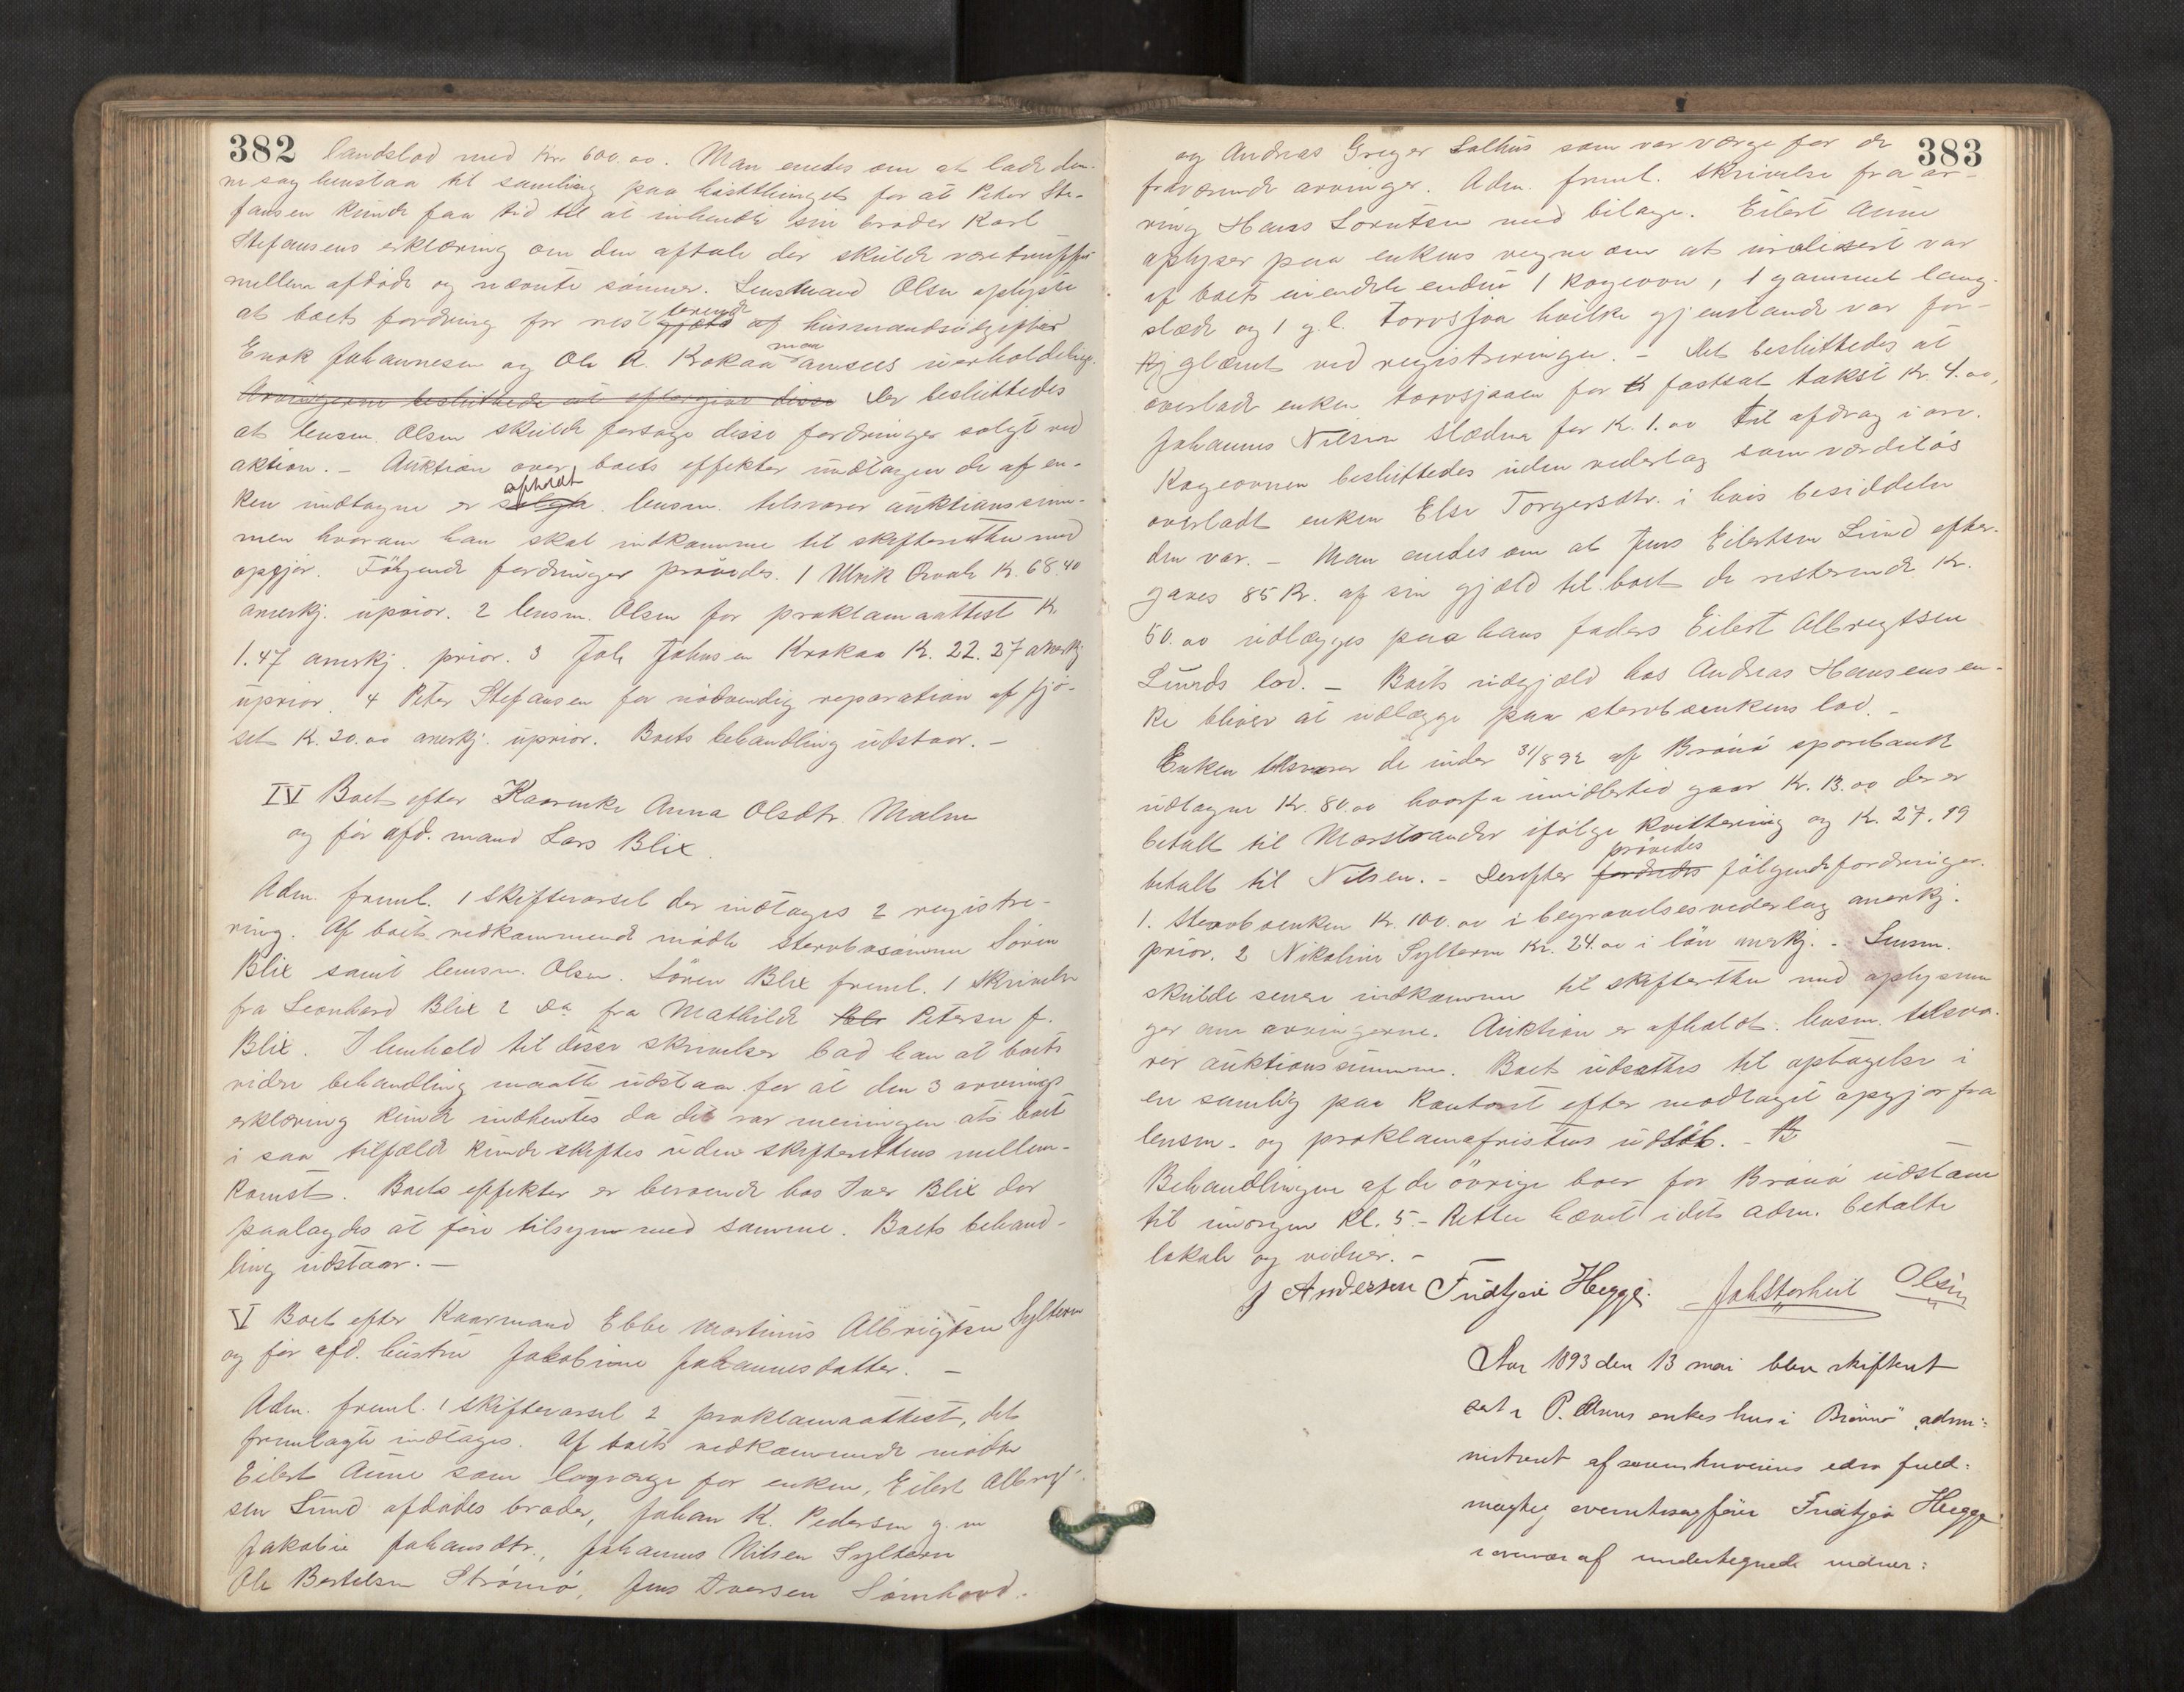 382
landslod med Kr. 600.00. Man enedes om at lade den-
ne sag henstaa til samling paa høstthinget for at Peter Ste-
fansen kunde faa tid til at indhente sin broder Karl
Stefansens erklæring om den aftale der skulde være truffet
mellem afdøde og nævnte sønner. Lensmand Olsen oplyste
at boets fordring for rest gjæld af husmandsudgifter
Enok Johannesen og Ole A. Krokaa maa ansees uerholdelig.
Arvingerne besluttede at eftergive disse Der besluttedes
at lensm. Olsen skulde forsøge disse fordringer solgt ved
aktion. - Auktion over boets effekter undtagen de af en-
ken undtagne er solgt afholdt. lensm. tilsvarer auktionssum-
men hvorom han skal indkomme til skifteretten med
opgjør. Følgende fordringer prøvedes. 1 Ulrik Qvale K. 68.40
anerkj. uprior. 2 lensm. Olsen for proklamaattest K.
1.47 anerkj. prior. 3 Joh Johnsen Krokaa K. 22.27 anerkj
uprior. 4 Peter Stefansen for nødvendig reparation af fjø-
set K. 20.00 anerkj. uprior. Boets behandling udstaar. -
IV Boet efter Kaarenke Anna Olsdtr. Malm
og før afd. mand Lars Blix.
Adm. freml. 1 skiftevarsel der indtages 2 registre-
ring. Af boets vedkommende mødte stervbosønnen Søren
Blix samt lensm. Olsen. Søren Blix freml. 1 skrivelse
fra Leonhard Blix 2 Do fra Mathilde Petersen f.
Blix. I henhold til disse skrivelser bad han at boets
videre behandling maatte udstaa for at den 3 arvings
erklæring kunde indhentes da det var meningen at boet
i saa tilfælde kunde skiftes uden skifterettens mellem-
komst. Boets effekter er beroende hos Iver Blix der
paalagdes at føre tilsyn med samme. Boets behand-
ling udstaar. -
V Boet efter Kaarmand Ebbe Martinus Albrigtsen Sylteren
og før afd. hustru Jakobine Johannesdatter. -
Adm. freml. 1 skiftevarsel 2 proklamaattest, det
fremlagte indtages. Af boets vedkommende mødte
Eilert Aune som lagværge for enken, Eilert Albregt-
sen Lund afdødes broder, Johan K. Pedersen g. m
Jakobie Johansdtr., Johannes Nilsen Sylteren
Ole Bertelsen Strømø, Jens Iversen Sømhovd.
383
og Andreas Greger Salhus som var værge for de
fraværende arvinger. Adm. freml. skrivelse fra ar-
ving Hans Lorntsen med bilage. Eilert Aune
oplyser paa enkens vegne om at urealisert var
af boets eiendele endnu 1 kogeovn, 1 gammel lang-
slæde og 1 g.l. torvsjaa hvilke gjenstande var for-
glemt ved registreringen. - Det besluttedes at
overlade enken torvsjaaen for fastsat takst Kr. 4.00,
Johannes Nilsen slæden for K. 1.00 til afdrag i arv.
Kogeovnen besluttedes uden vederlag som værdiløs
overladt enken Else Torgersdtr. i hvis besiddelse
den var. - Man enedes om at Jens Eilertsen Lund efter-
gaves 85 K. af sin gjæld til boet de resterende Kr.
50.00 udlægges paa hans faders Eilert Albregtsen
Lunds lod. - Boets udegjæld hos Andreas Hansens en-
ke bliver at udlægge paa stervboenkens lod. -
Enken tilsvarer de under 31/8 92 af Brønø sparebank
udtagne Kr. 80.00 hvorfra imidlertid gaar Kr. 13.00 der er
betalt til Marstrander ifølge kvittering og K. 27.99
betalt til Nilsen. - Derefter prøvedes følgende fordringer.
1. Stervboenken Kr. 100.00 i begravelsesvederlag anerkj.
prior. 2 Nikoline Sylteren Kr. 24.00 i løn anerkj. - Lensm.
skulde senere indkomme til skifteretten med oplysnin-
ger om arvingerne. Auktion er afholdt. lensm. tilsva-
rer auktionssummen. Boet udsattes til optagelse i
en samling paa kontoret efter modtaget opgjør fra
lensm. og proklamafristens udløb. -
Behandlingen af de øvrige boer for Brønø udstaar
til imorgen Kl. 5. - Retten hævet idet adm. betalte
lokale og vidner. -
J Andersen Fridtjov Hegge. Joh Storheil Olsen
Aar 1893 den 13 mai blev skifteret
sat i P. Aunes enkes hus i Brønø admi-
nistreret af sorenskriverens edsv fuld-
mægtig overretssagfører Fridtjov Hegge
i overvær af undertegnede vidner: